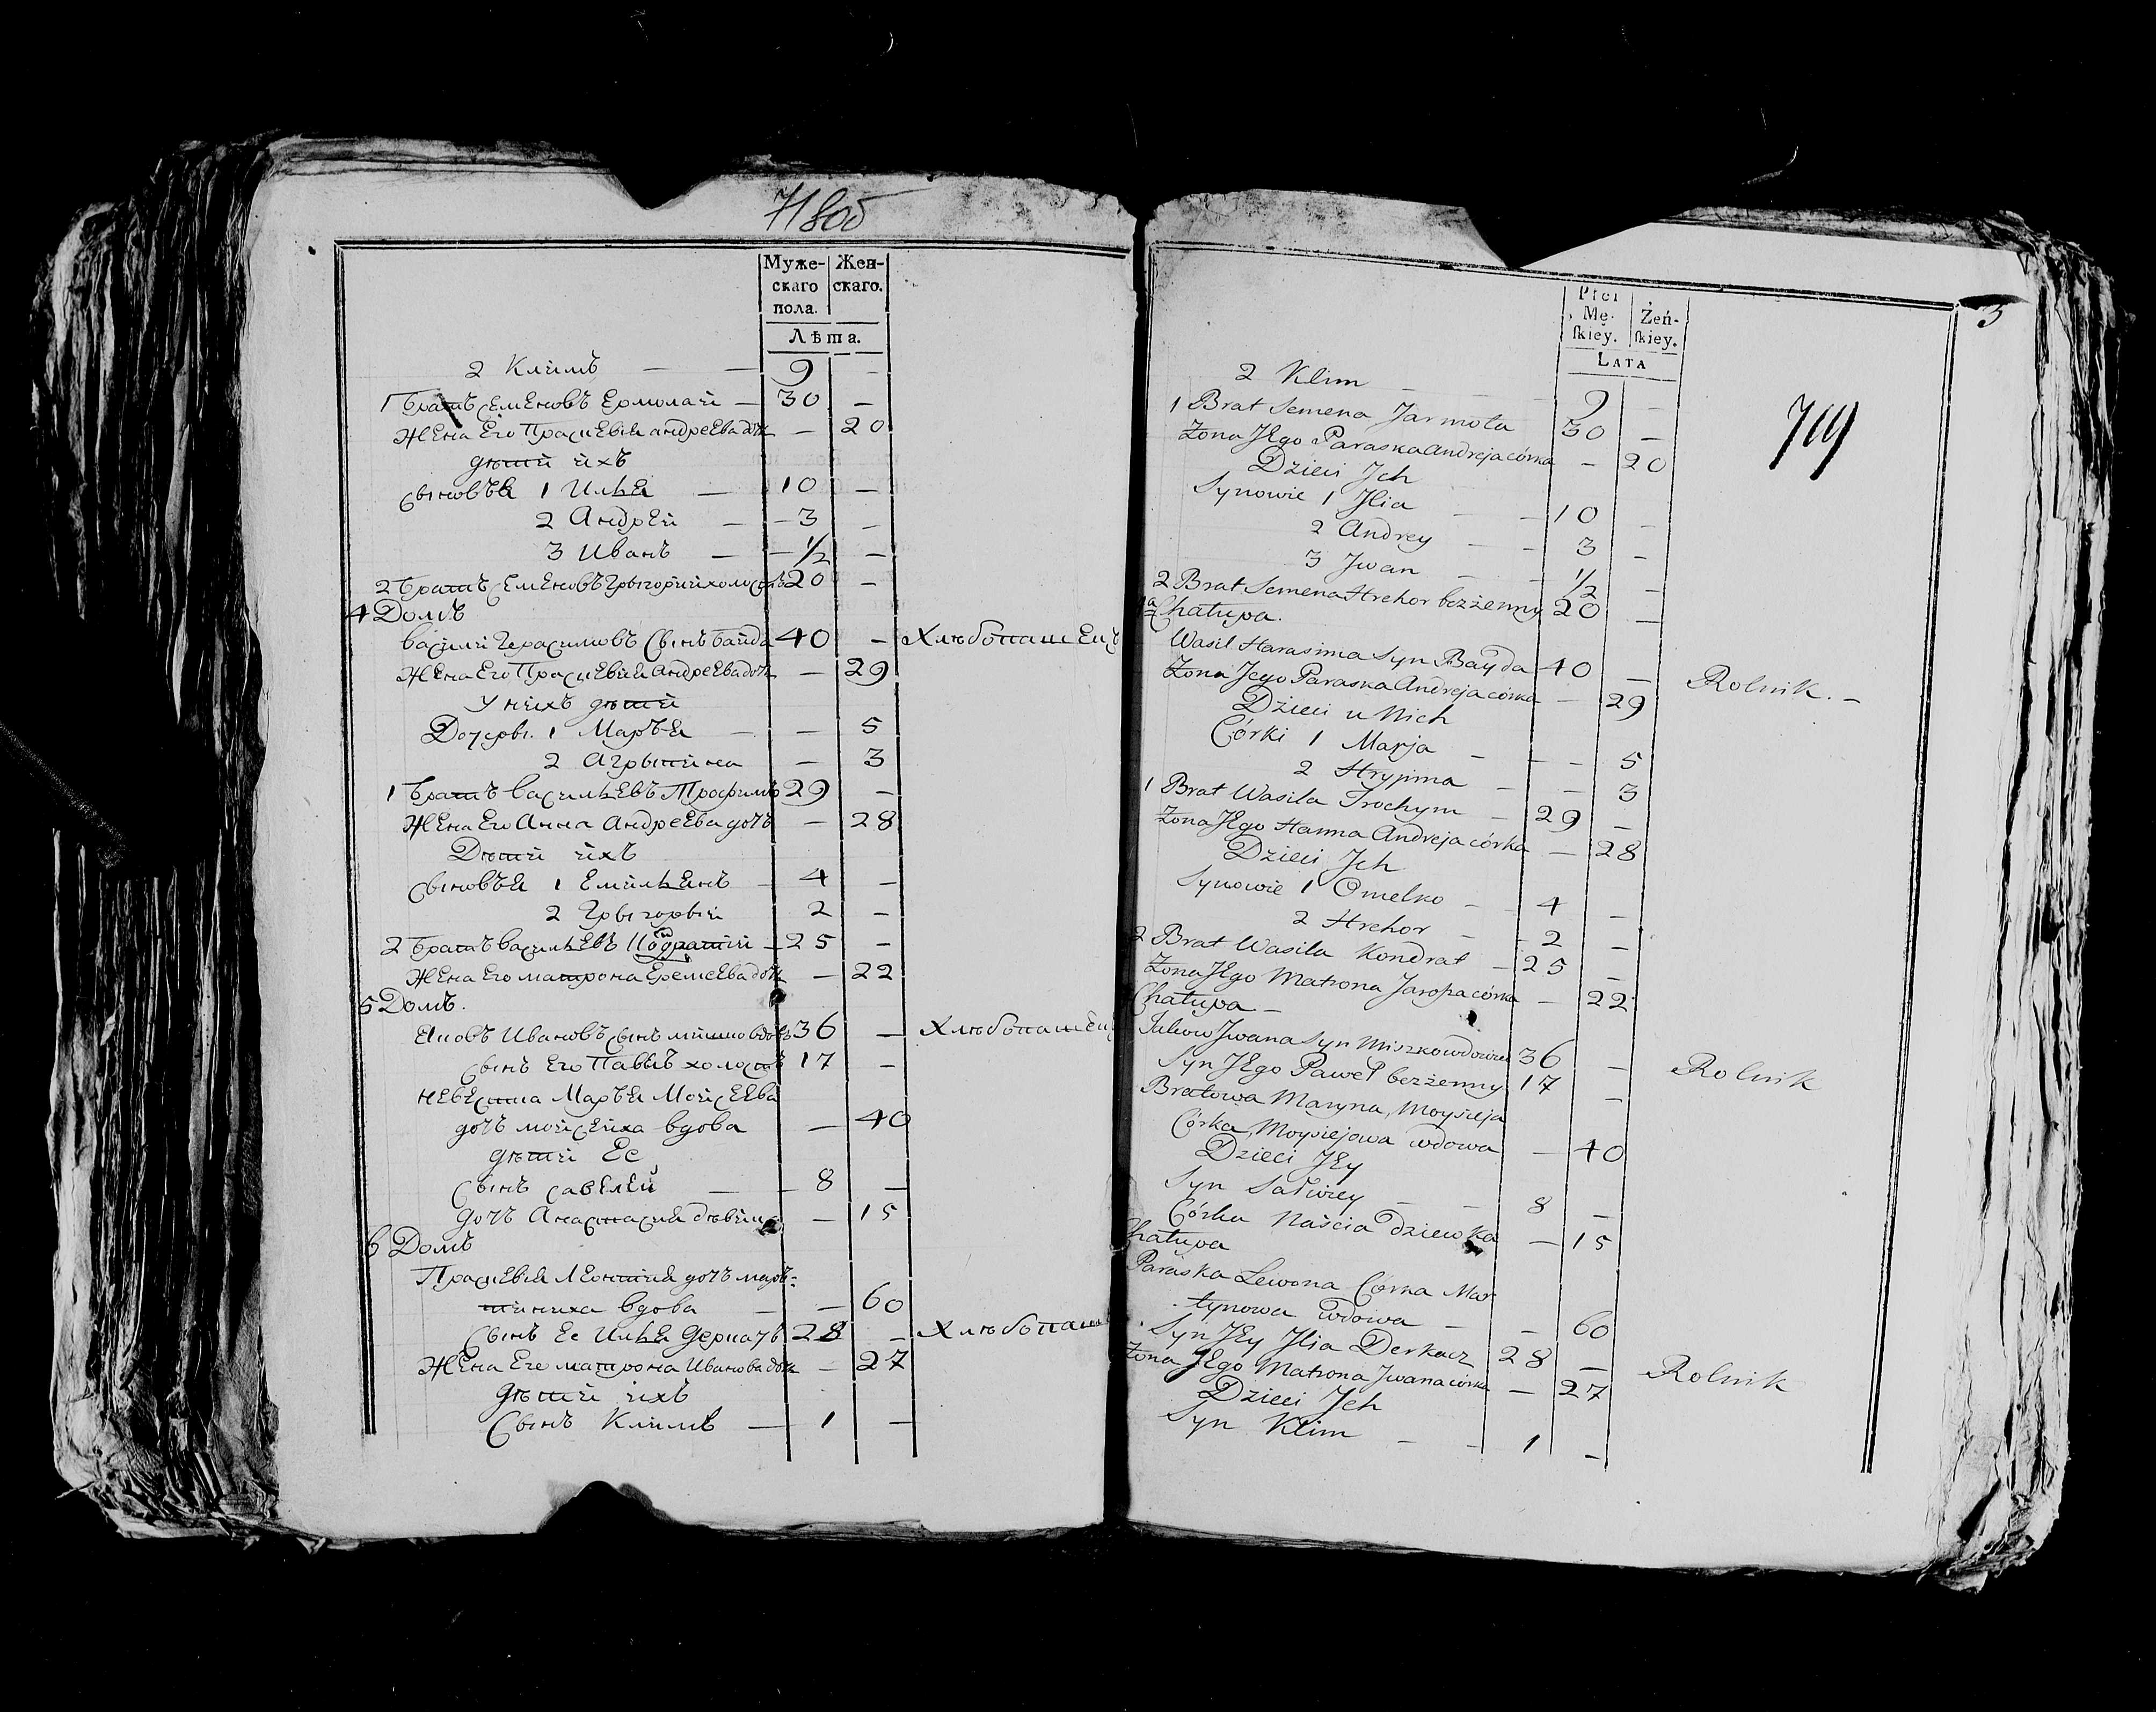 71 803
Муже-
скаго
пола.
Жен-
скаго.
Лѣта.
2 Климъ — 9 —
1 Братъ Семеновъ Ермолай — 30 —
Жена Его Праскевія андреева дочь — 20
дѣти ихъ
Сыновья 1 Илья — 10 —
2 Андрей — 3 —
3 Иванъ — 1/2 —
2 Братъ Семеновъ Грыгорий холостъ 20 —
4 Домъ
Василий Герасимовъ Сынъ Байда 40 — Хлѣбопашецъ
Жена Его Праскевия Андреева дочь — 29
У нихъ дѣтей
Дочеры. 1 Марья — — 5
2 Агрыпина — 3
1 Братъ Васильевъ Трофимъ 29 —
Жена Его Анна Андреева дочь — 28
Дѣти ихъ
Сыновья 1 Емильянъ — 4 —
2 Грыгорый 2 —
2 Братъ Васильевъ Кодратий — 25 —
Жена Его матрона Еремеева дочь — 22
5 Домъ.
Яковъ Ивановъ Сынъ мишко вдовъ 36 — Хлѣбопашец
Сынъ Его Павелъ холостъ 17 —
невестка Марья Моисеева
дочь мойсейха вдова — 40
дѣти Ее
Сынъ Савелей — 8 —
дочь Анастасия дѣвица — 15
6 Домъ
Праскевия Леонтия дочь март=
тиниха вдова — — 60
Сынъ Ее Илья Деркачъ 28 — Хлѣбопаш
Жена Его матрона Иванова дочь — 27
дѣти ихъ
Сынъ Климъ — 1 —
3
719
Płci
Mę-
skiey.
Żeń-
skiey.
LATA
2 Klim — 9 —
1 Brat Semena Jarmoła 30 —
Zona Jego Paraska Andreja córka — 20
Dzieci Jch
Synowie 1 Jlia — 10 —
2 Andrey — 3 —
3 Jwan — 1/2 —
2 Brat Semena Hrehor bezżenny 20 —
Chałupa.
Wasil Harasima Syn Bayda 40 — Rolnik. —
Zona Jego Paraska Andreja córka — 29
Dzieci u Nich
Córki 1 Marja — — 5
2 Hrypina — — 3
1 Brat Wasila Trochym — 29 —
Zona Jego Hanna Andreja córka — 28
Dzieci Jch
Synowie 1 Omelko — 4 —
2 Hrehor — 2 —
2 Brat Wasila Kondrat — 25 —
Zona Jego Matrona Jarosza córka — 22
Chałupa —
Jakow Jwana Syn Miszko wdowiec 36 — Rolnik
Syn Jego Paweł bezżenny 17 —
Bratowa Maryna, Moysieja
Córka, Moysiejowa wdowa — 40
Dzieci Jey
Syn Saťwiey — 8 —
Córka Naścia dziewka — 15
Chałupa
Paraska Lewona Córka Mar
tynowa wdowa — — 60
Syn Jey Jlia Derkacz 28 — Rolnik
Zona Jego Matrona Jwana córka — 27
Dzieci Jch
Syn Klim — 1 —